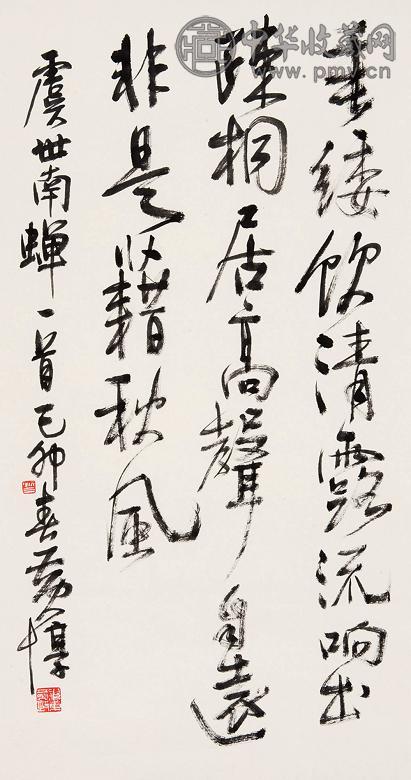 中华收藏网
www.pmv.cn
垂緌飲清露流响出
疎桐居高聲自遠
非是籍秋風
虞世南蟬一首己卯春黄惇